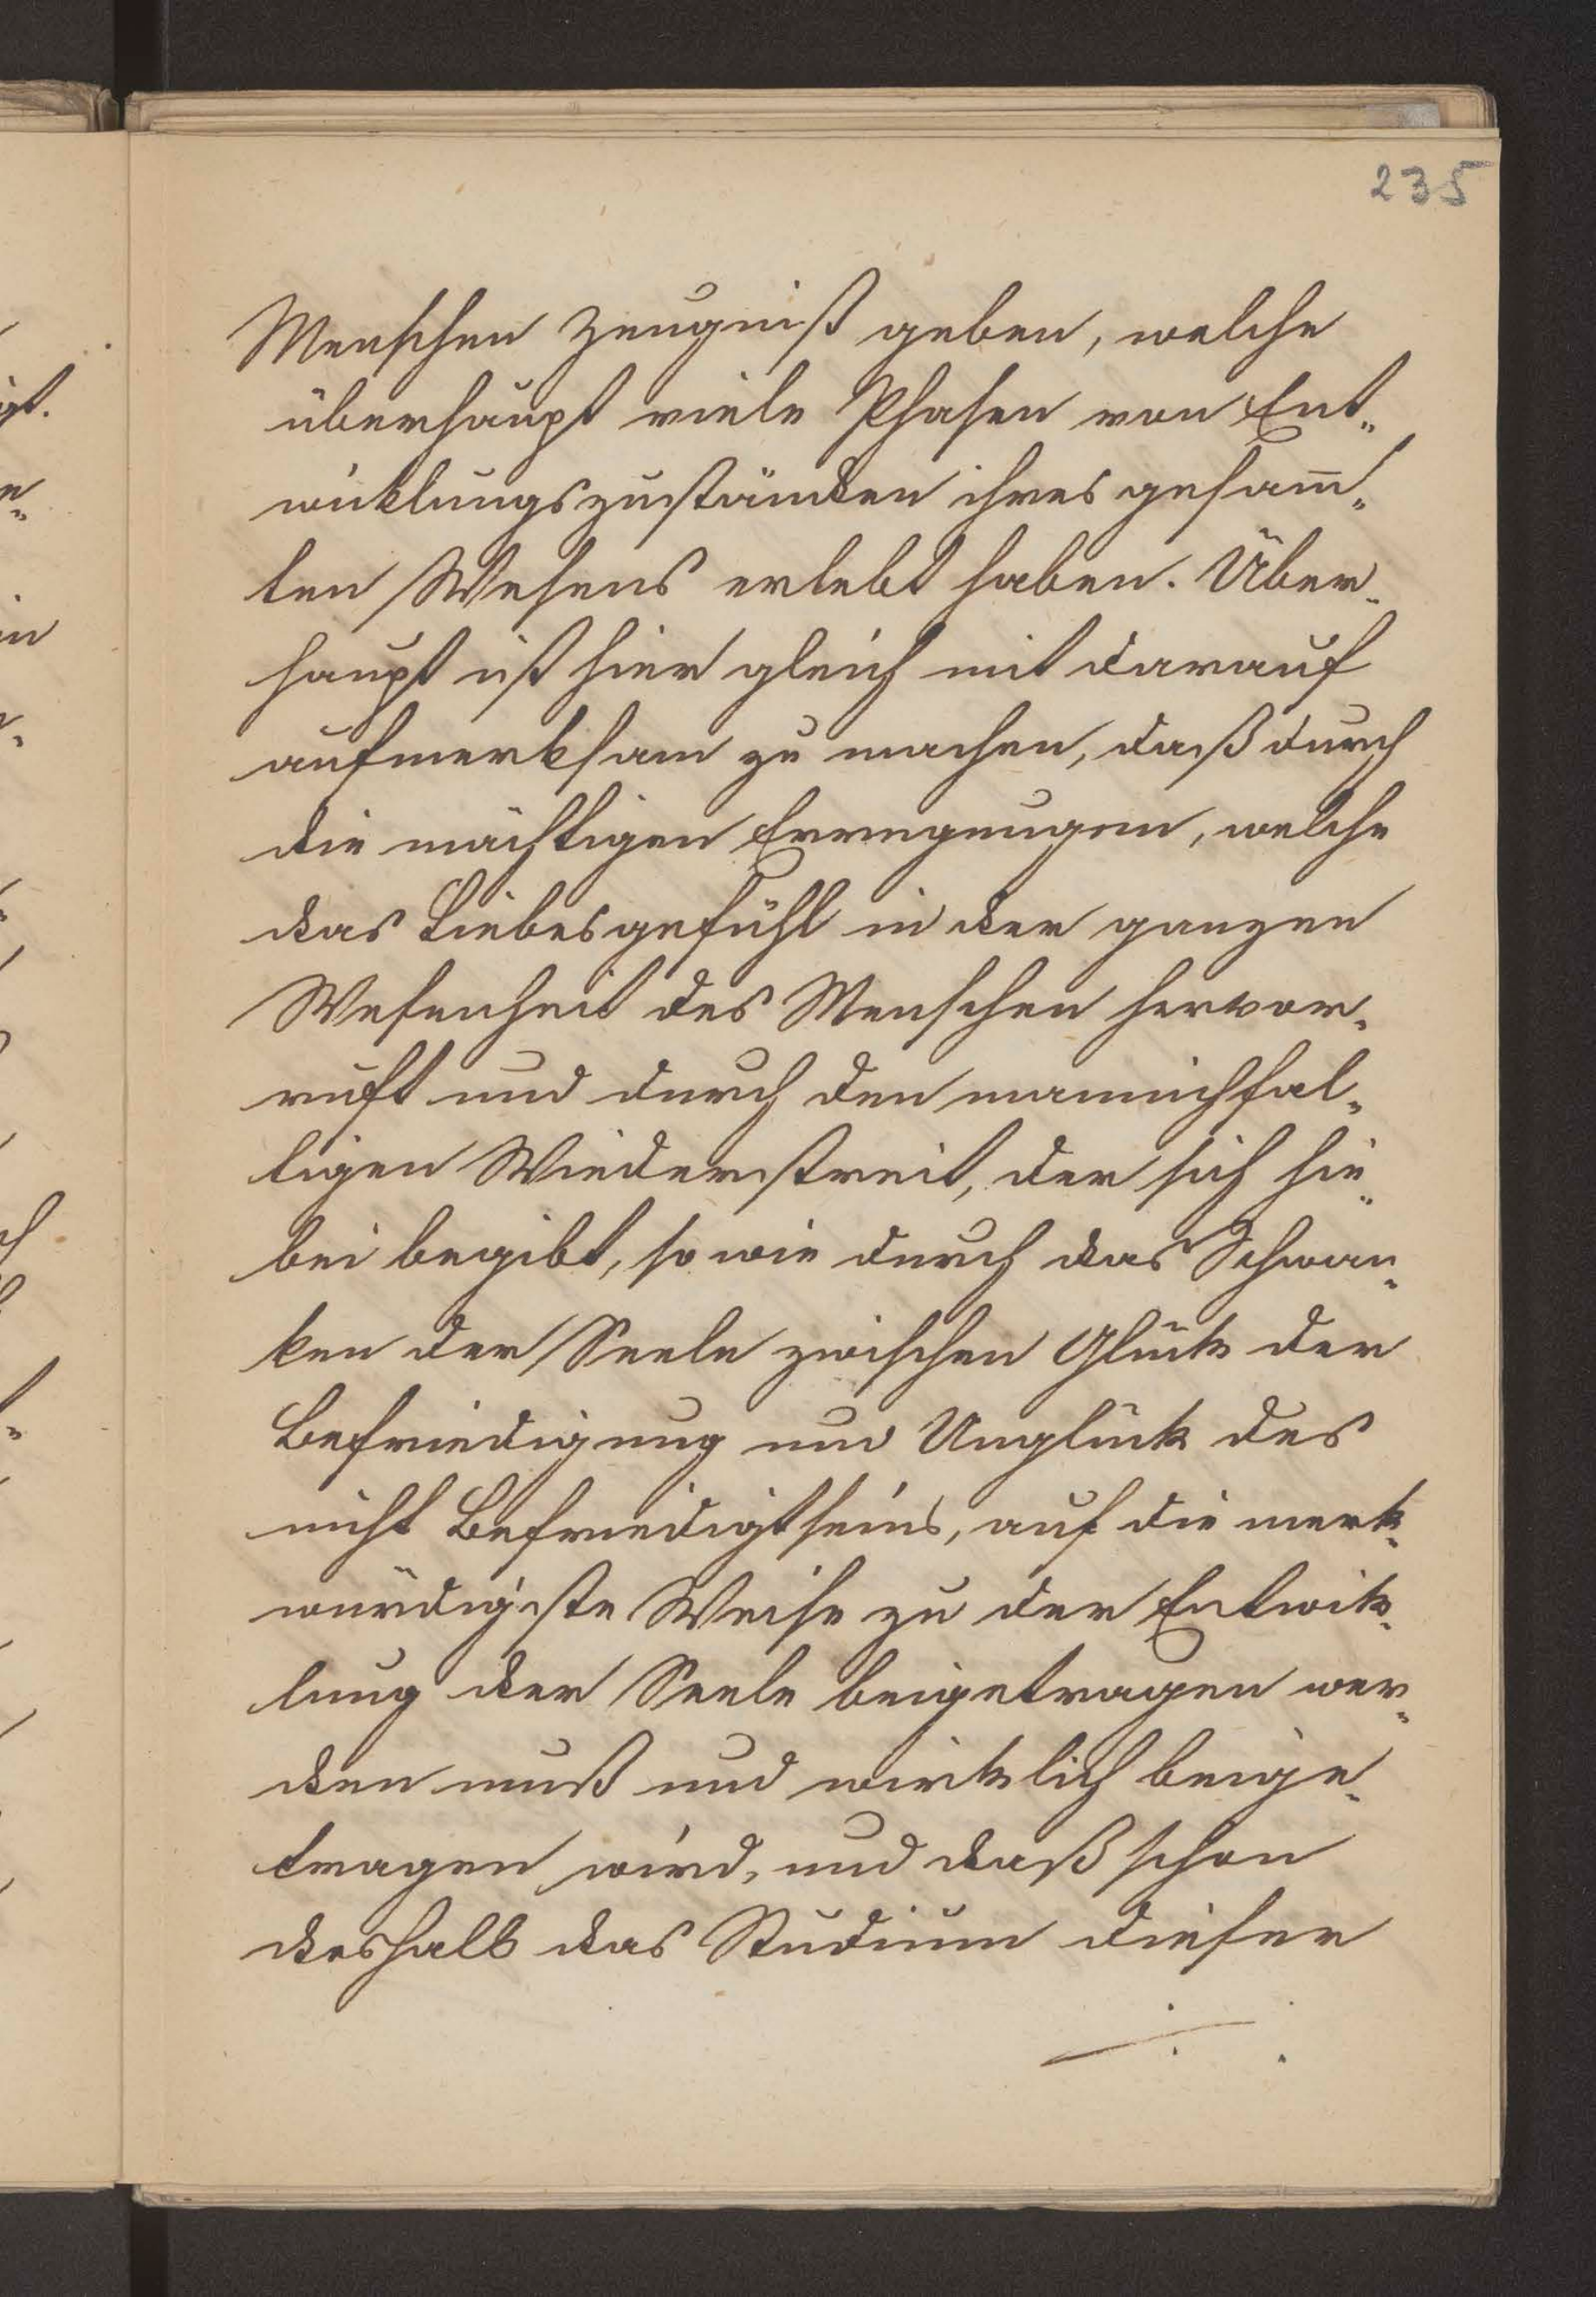 235
Menschen Zeugniß geben, welche
überhaupt viele Phasen von Ent„
wicklungszuständen ihres gesam̄„
ten Wesens erlebt haben. Über„
haupt ist hier gleich mit darauf
aufmerksam zu machen, daß durch
die mächtigen Erregungen, welche
das Liebesgefühl in der ganzen
Wesenheit des Menschen hervor„
ruft und durch den mannichfal„
tigen Wiederstreit, der sich hie„
bei begibt, so wie durch das Schwan„
ken der Seele zwischen Glück der
Befriedigung und Unglück des
nicht Befriedigtseins, auf die merk„
würdigste Weise zu der Entwik„
lung der Seele beigetragen wer„
den muß und wirklich beige„
tragen wird, und daß schon
deshalb das Studium dieser